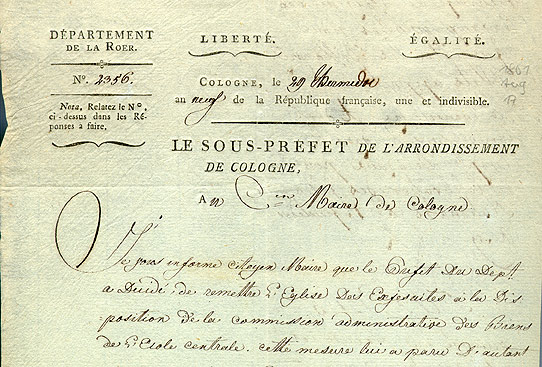 DÉPARTEMENT
DE LA ROER.
N.° 2356.
Nota, Relatez le N.°,
ci-dessus dans les Ré-
ponses à faire.
LIBERTÉ.
ÉGALITÉ.
COLOGNE, le 29 Thermidor
an neuf de la République française, une et indivisible.
1801
Aug
17
LE SOUS-PRÉFET DE L'ARRONDISSEMENT
DE COLOGNE,
A u Cen Maire de Cologne
Je vous informe citoyen Maire que le Préfet Du Dept.
a Décidé, de remettre L'Eglise Des Exjesuites a la Dis
position de la commission administrative des Biens
de L'Ecole centrale. cette mesure lui a paru D'autant